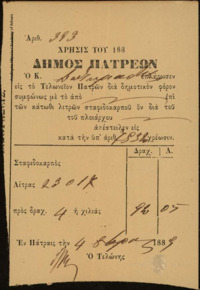 Ἀριθ. 383
ΧΡΗΣΙΣ ΤΟΥ 188
ΔΗΜΟΣ ΠΑΤΡΕΩΝ
Ὁ Κ.
εἰς τὸ Τελωνεῖον Πατρῶν διὰ δημοτικὸν φόρον
συμφώνως μὲ τὸ ἀπὸ ἐπὶ
τῶν κάτωθι λιτρῶν σταφιδοκαρποῦ ὃν διὰ τοῦ
τοῦ πλοιάρχου
ἀπέστειλεν εἰς
κατὰ τὴν ὑπ' ἀριθ.
Σταφιδοκαρπὸς
Λίτρας 23017
πρὸς δραχ. 4 ἡ χιλιὰς 92 05
Ἐν Πάτραις τὴν 4 8βρίου 1883
Ὁ Τελώνης